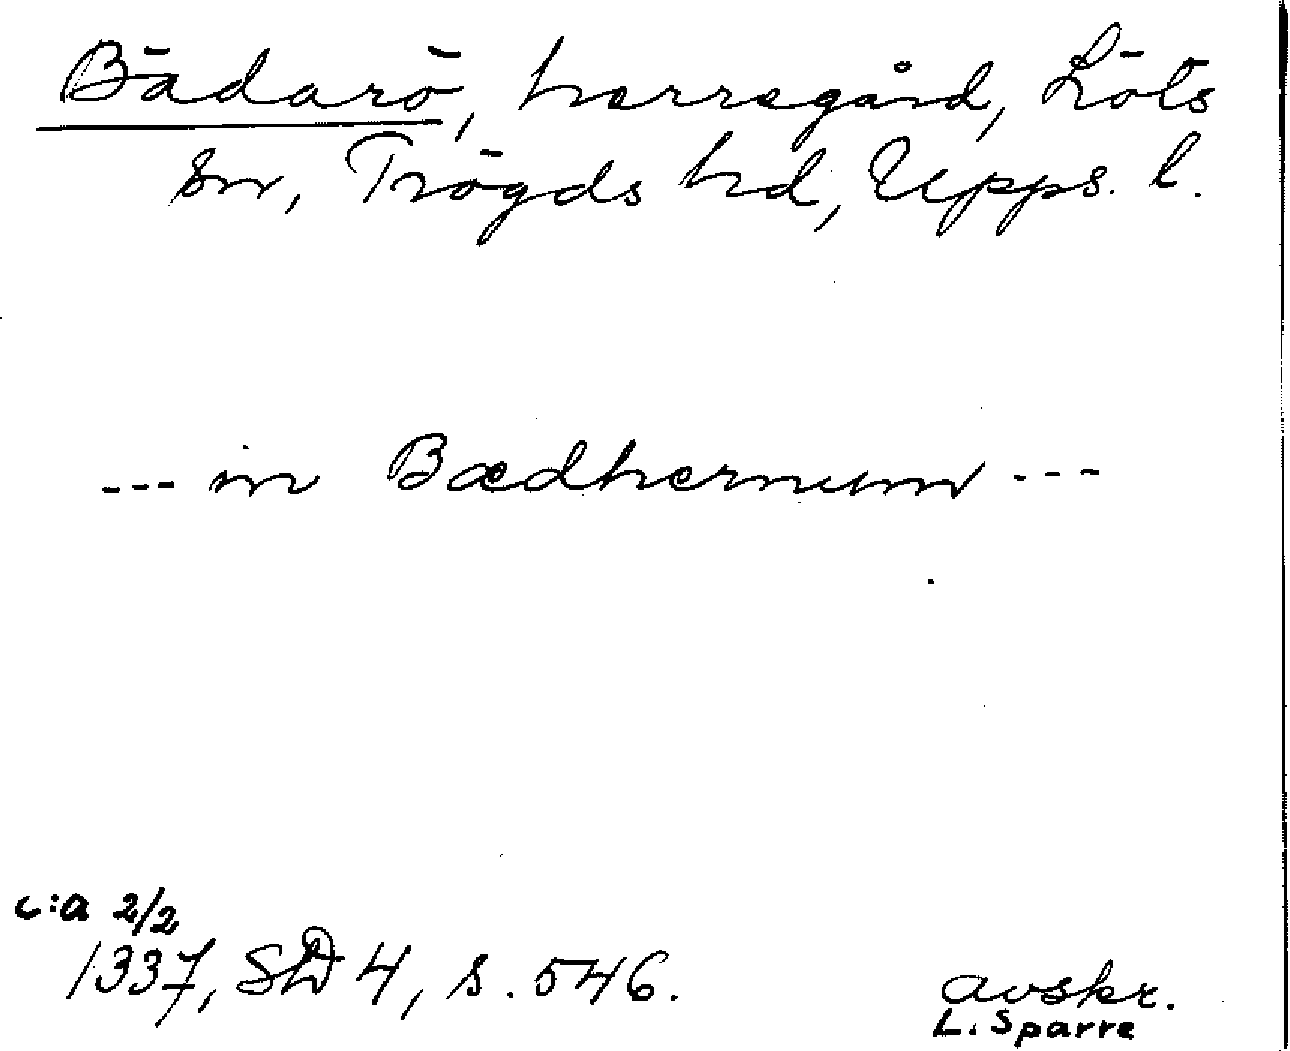 Bādarö, herregård, Löts
sn, Trögds hd, Upps. l.
--- in Bædhernum ---
c:a 2/2
1337, SD 4, s. 546.
avskr.
L. Sparre